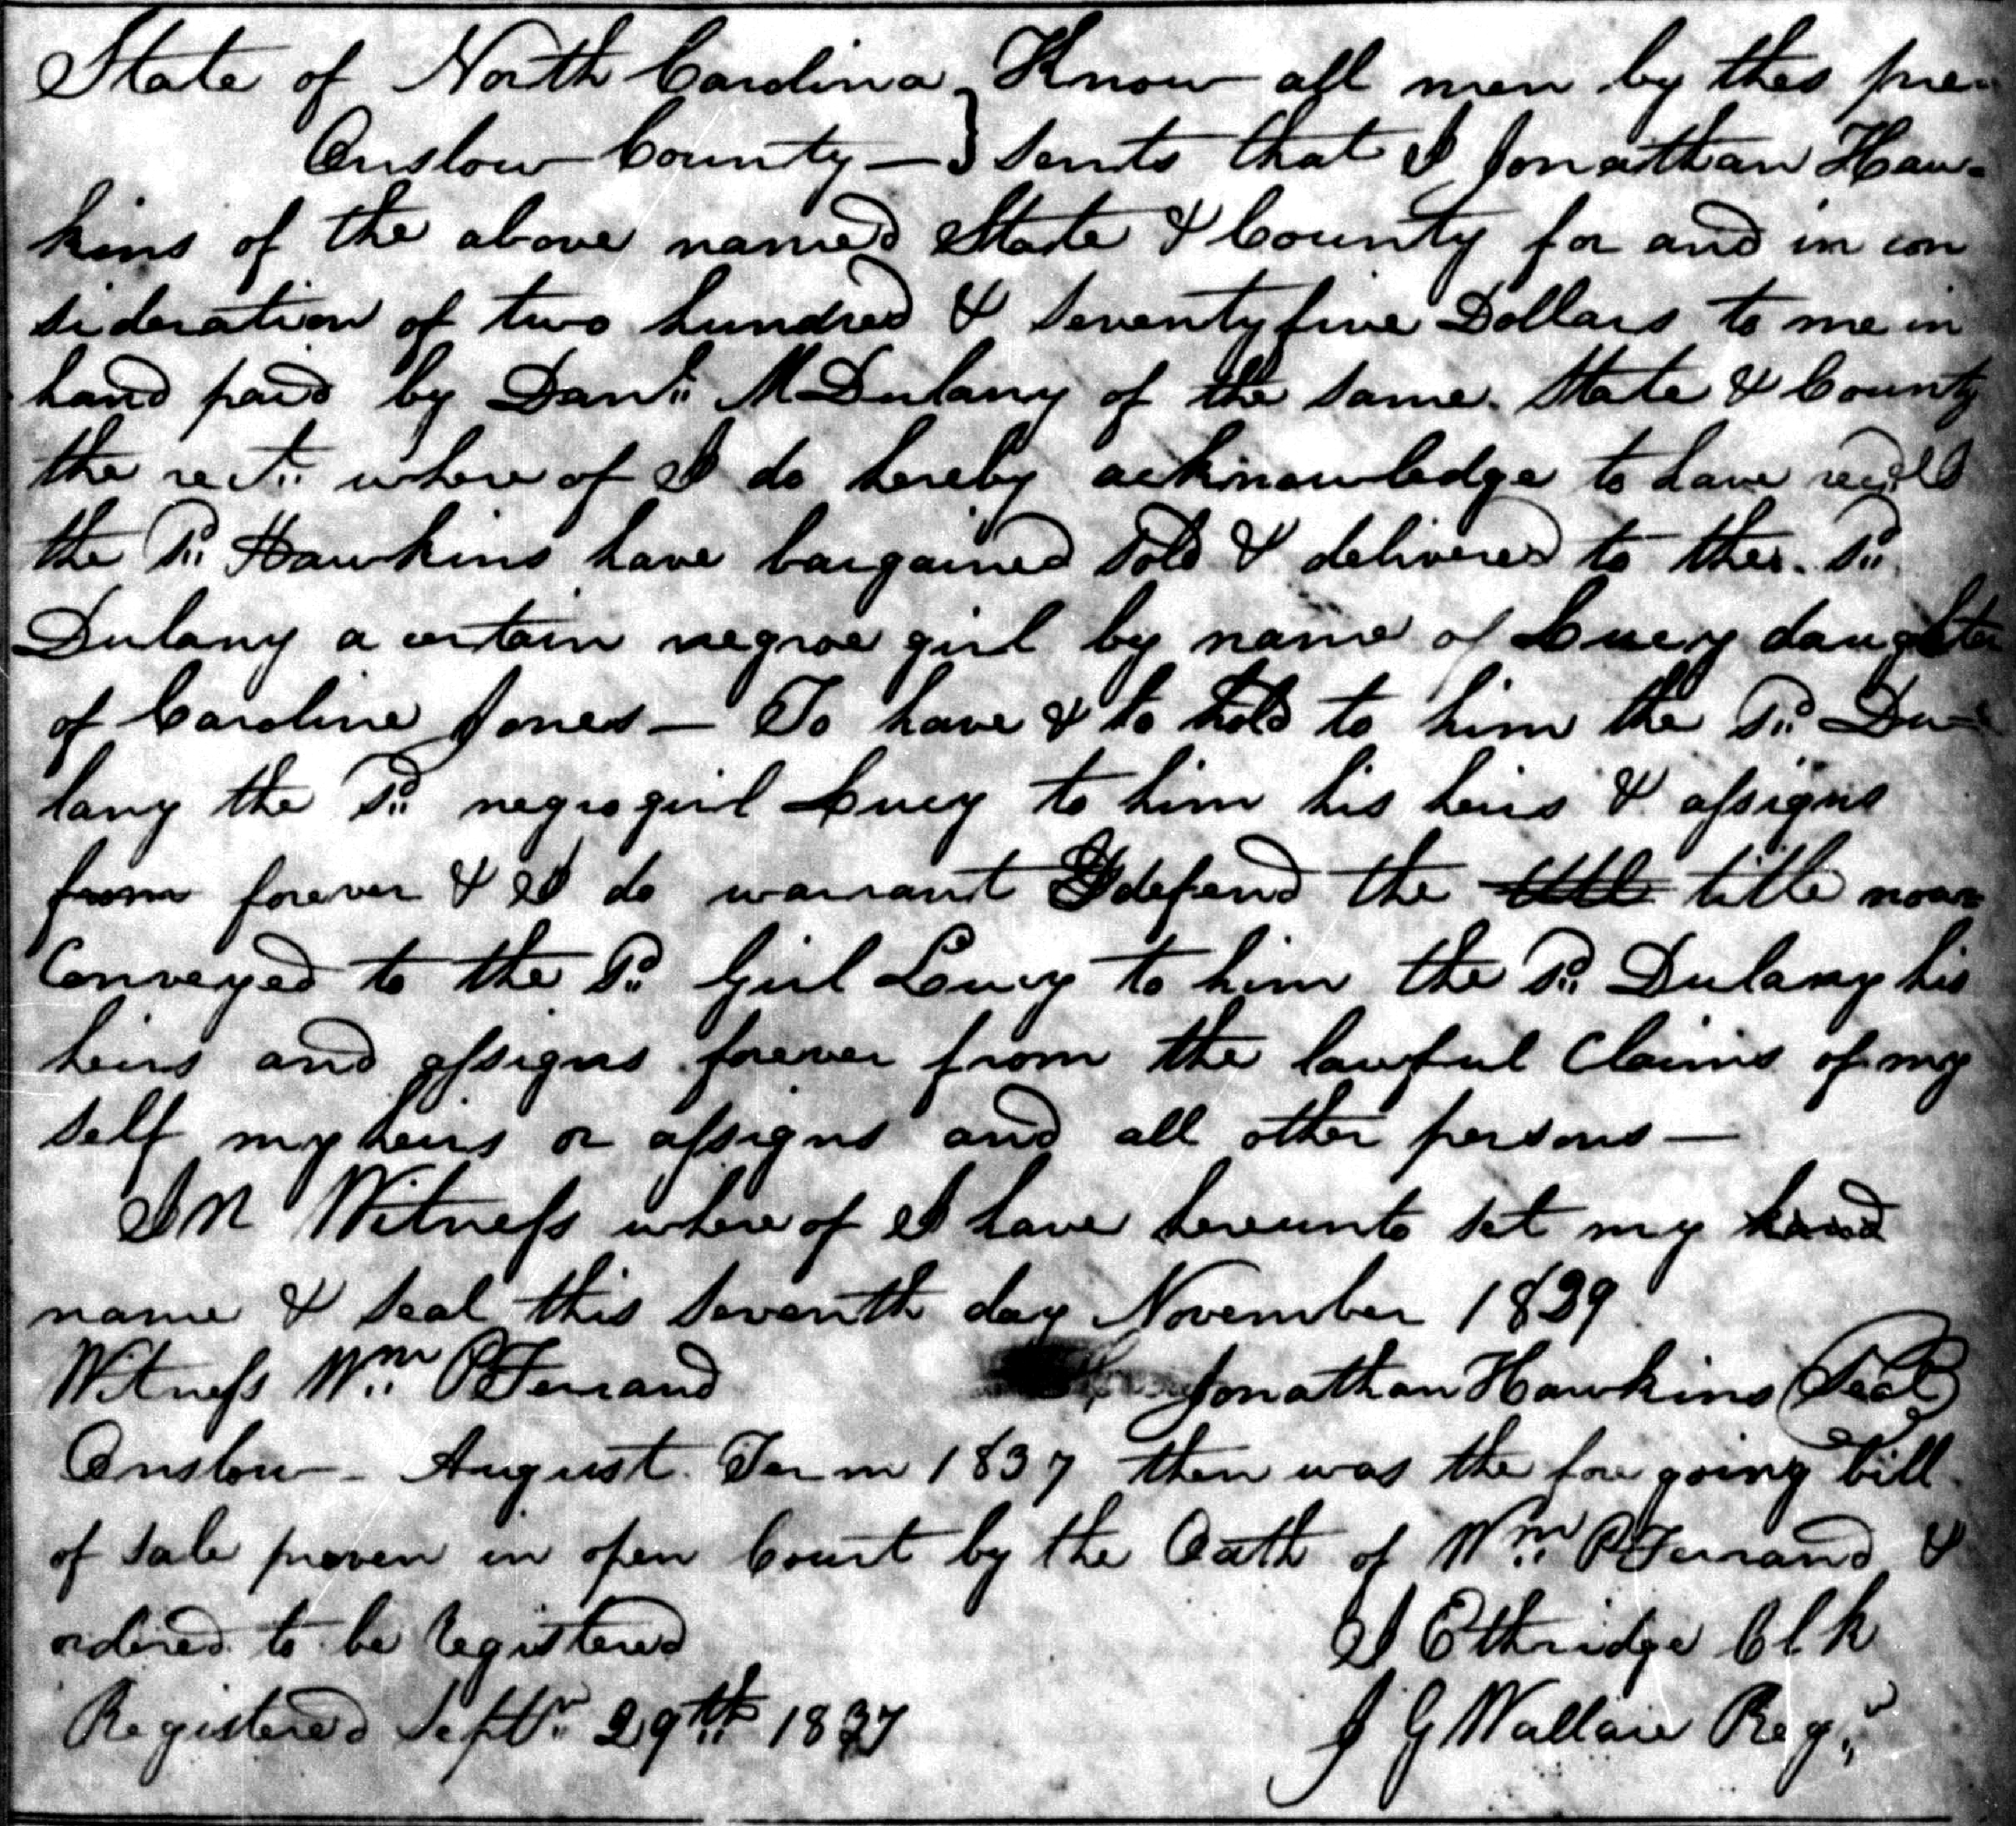 State of North Carolina } Know all men by thes pre-
Onslow County — } sents that I Jonathan Haw-
kins of the above named State & County for and in con
sideration of two hundred & seventy five Dollars to me in
hand paid by Danl. M Dulany of the same State & County
the rect. where of I do hereby acknowledge to have
the Sd. Hawkins have bargained sold & delivered to the Sd.
Dulany a certain negroe girl by name of Lucy daughter
of Caroline Jones — To have & to hold to him the Sd. Du-
lany the Sd. negro girl Lucy to him his heirs & assigns
from forever & I do warrant & defend the title title now
Conveyed to the Sd. Girl Lucy to him the Sd. Dulany his
heirs and assigns forever from the lawful Claims of my
self my heirs or assigns and all other persons —
In Witness where of I have hereunto set my hand
name & seal this seventh day November 1829
Witness Wm. P Ferrand Jonathan Hawkins (Seal)
Onslow - August Term 1837 then was the fore going bill
of sale proven in open Court by the Oath of Wm. P Ferrand &
ordered to be Registered Ethridge Clk
Registered Septr. 29th 1837 J G Wallace Regr.